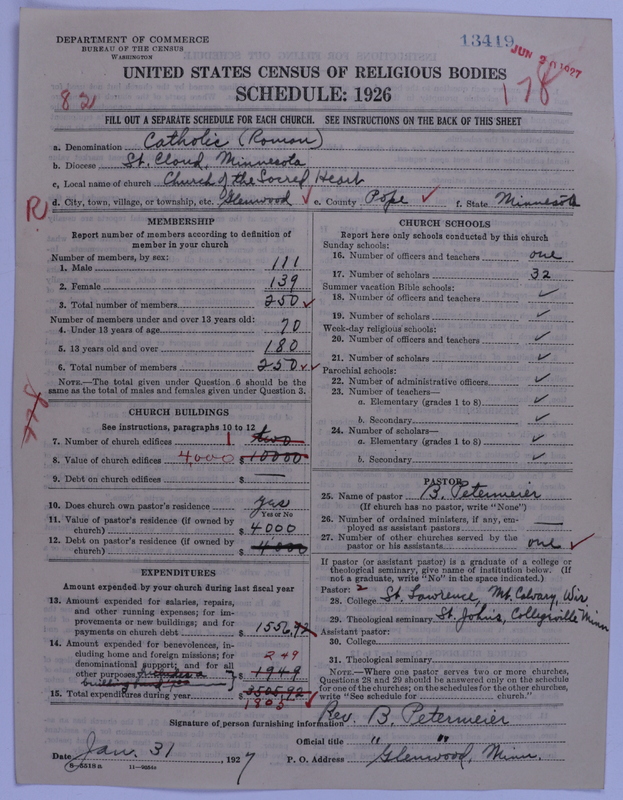 DEPARTMENT OF COMMERCE
BUREAU OF THE CENSUS
WASHINGTON
13419
JUN 2 1927
UNITED STATES CENSUS OF RELIGIOUS BODIES
SCHEDULE: 1926
82
178
FILL OUT A SEPARATE SCHEDULE FOR EACH CHURCH. SEE INSTRUCTIONS ON THE BACK OF THIS SHEET
a. Denomination Catholic (Roman)
b. Diocese St. Cloud, Minnesota
c. Local name of church Church of the Sacred Heart
d. City, town, village, or township, etc. Glenwood ✓ e. County Pope ✓ f. State Minnesota
R
MEMBERSHIP
Report number of members according to definition of
member in your church
Number of members, by sex:
1. Male 111
2. Female 139
3. Total number of members 250 ✓
Number of members under and over 13 years old:
4. Under 13 years of age 70
5. 13 years old and over 180
6. Total number of members 250 ✓✓
NOTE.—The total given under Question 6 should be the
same as the total of males and females given under Question 3.
CHURCH BUILDINGS
See instructions, paragraphs 10 to 12
7. Number of church edifices 1 two
8. Value of church edifices 4,000 $ 10000
9. Debt on church edifices $ —
10. Does church own pastor's residence yes
Yes or No
11. Value of pastor's residence (if owned by
church) $ 4000
12. Debt on pastor's residence (if owned by
church) $ 4000
EXPENDITURES
Amount expended by your church during last fiscal year
13. Amount expended for salaries, repairs,
and other running expenses; for im-
provements or new buildings; and for
payments on church debt $ 1556,92
14. Amount expended for benevolences, in-
cluding home and foreign missions; for
denominational support; and for all
other purposes 249
$ 1949
15. Total expenditures during year $ 3505,92
1805 ✓
CHURCH SCHOOLS
Report here only schools conducted by this church
Sunday schools:
16. Number of officers and teachers one
17. Number of scholars 32
Summer vacation Bible schools:
18. Number of officers and teachers ✓
19. Number of scholars ✓
Week-day religious schools:
20. Number of officers and teachers ✓
21. Number of scholars ✓
Parochial schools:
22. Number of administrative officers ✓
23. Number of teachers—
a. Elementary (grades 1 to 8) ✓
b. Secondary ✓
24. Number of scholars—
a. Elementary (grades 1 to 8) ✓
b. Secondary ✓
PASTOR
25. Name of pastor B. Petermeier
(If church has no pastor, write "None")
26. Number of ordained ministers, if any, em-
ployed as assistant pastors —
27. Number of other churches served by the
pastor or his assistants one ✓
If pastor (or assistant pastor) is a graduate of a college or
theological seminary, give name of institution below. (If
not a graduate, write "No" in the space indicated.)
Pastor: 2
28. College St. Lawrence, Mt. Calvary, Wis
29. Theological seminary St. Johns, Collegeville Minn
Assistant pastor:
30. College
31. Theological seminary
NOTE.—Where one pastor serves two or more churches,
Questions 28 and 29 should be answered only on the schedule
for one of the churches; on the schedules for the other churches,
write "See schedule for church."
Signature of person furnishing information Rev. B. Petermeier
Official title " "
Date Jan. 31 1927 P. O. Address Glenwood, Minn.
8—5518a 11—9054